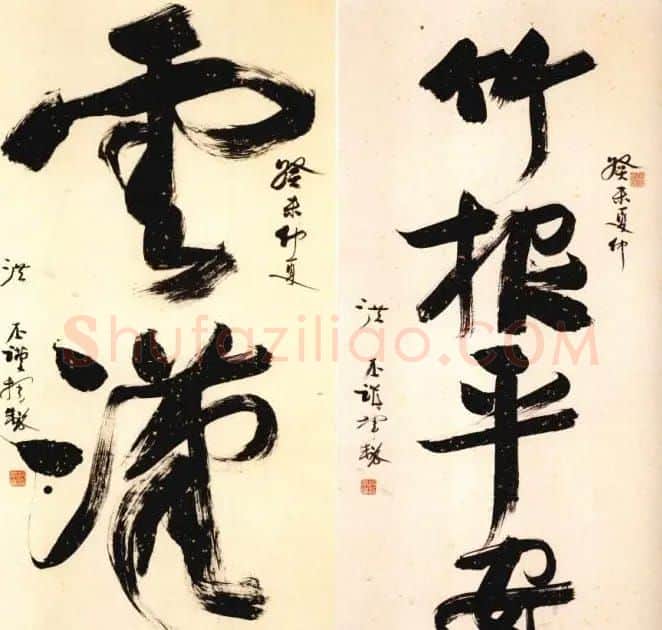 雲
癸未仲夏
洪丕謨
竹报平安
癸未夏仲
洪丕謨
Shufaziliao.COM